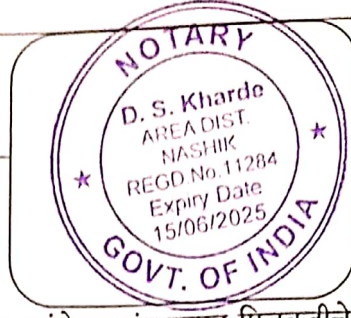 NOTARY
D. S. Kharde
AREA DIST.
NASHIK
REGD.No.11284
Expiry Date
15/06/2025
GOVT. OF INDIA